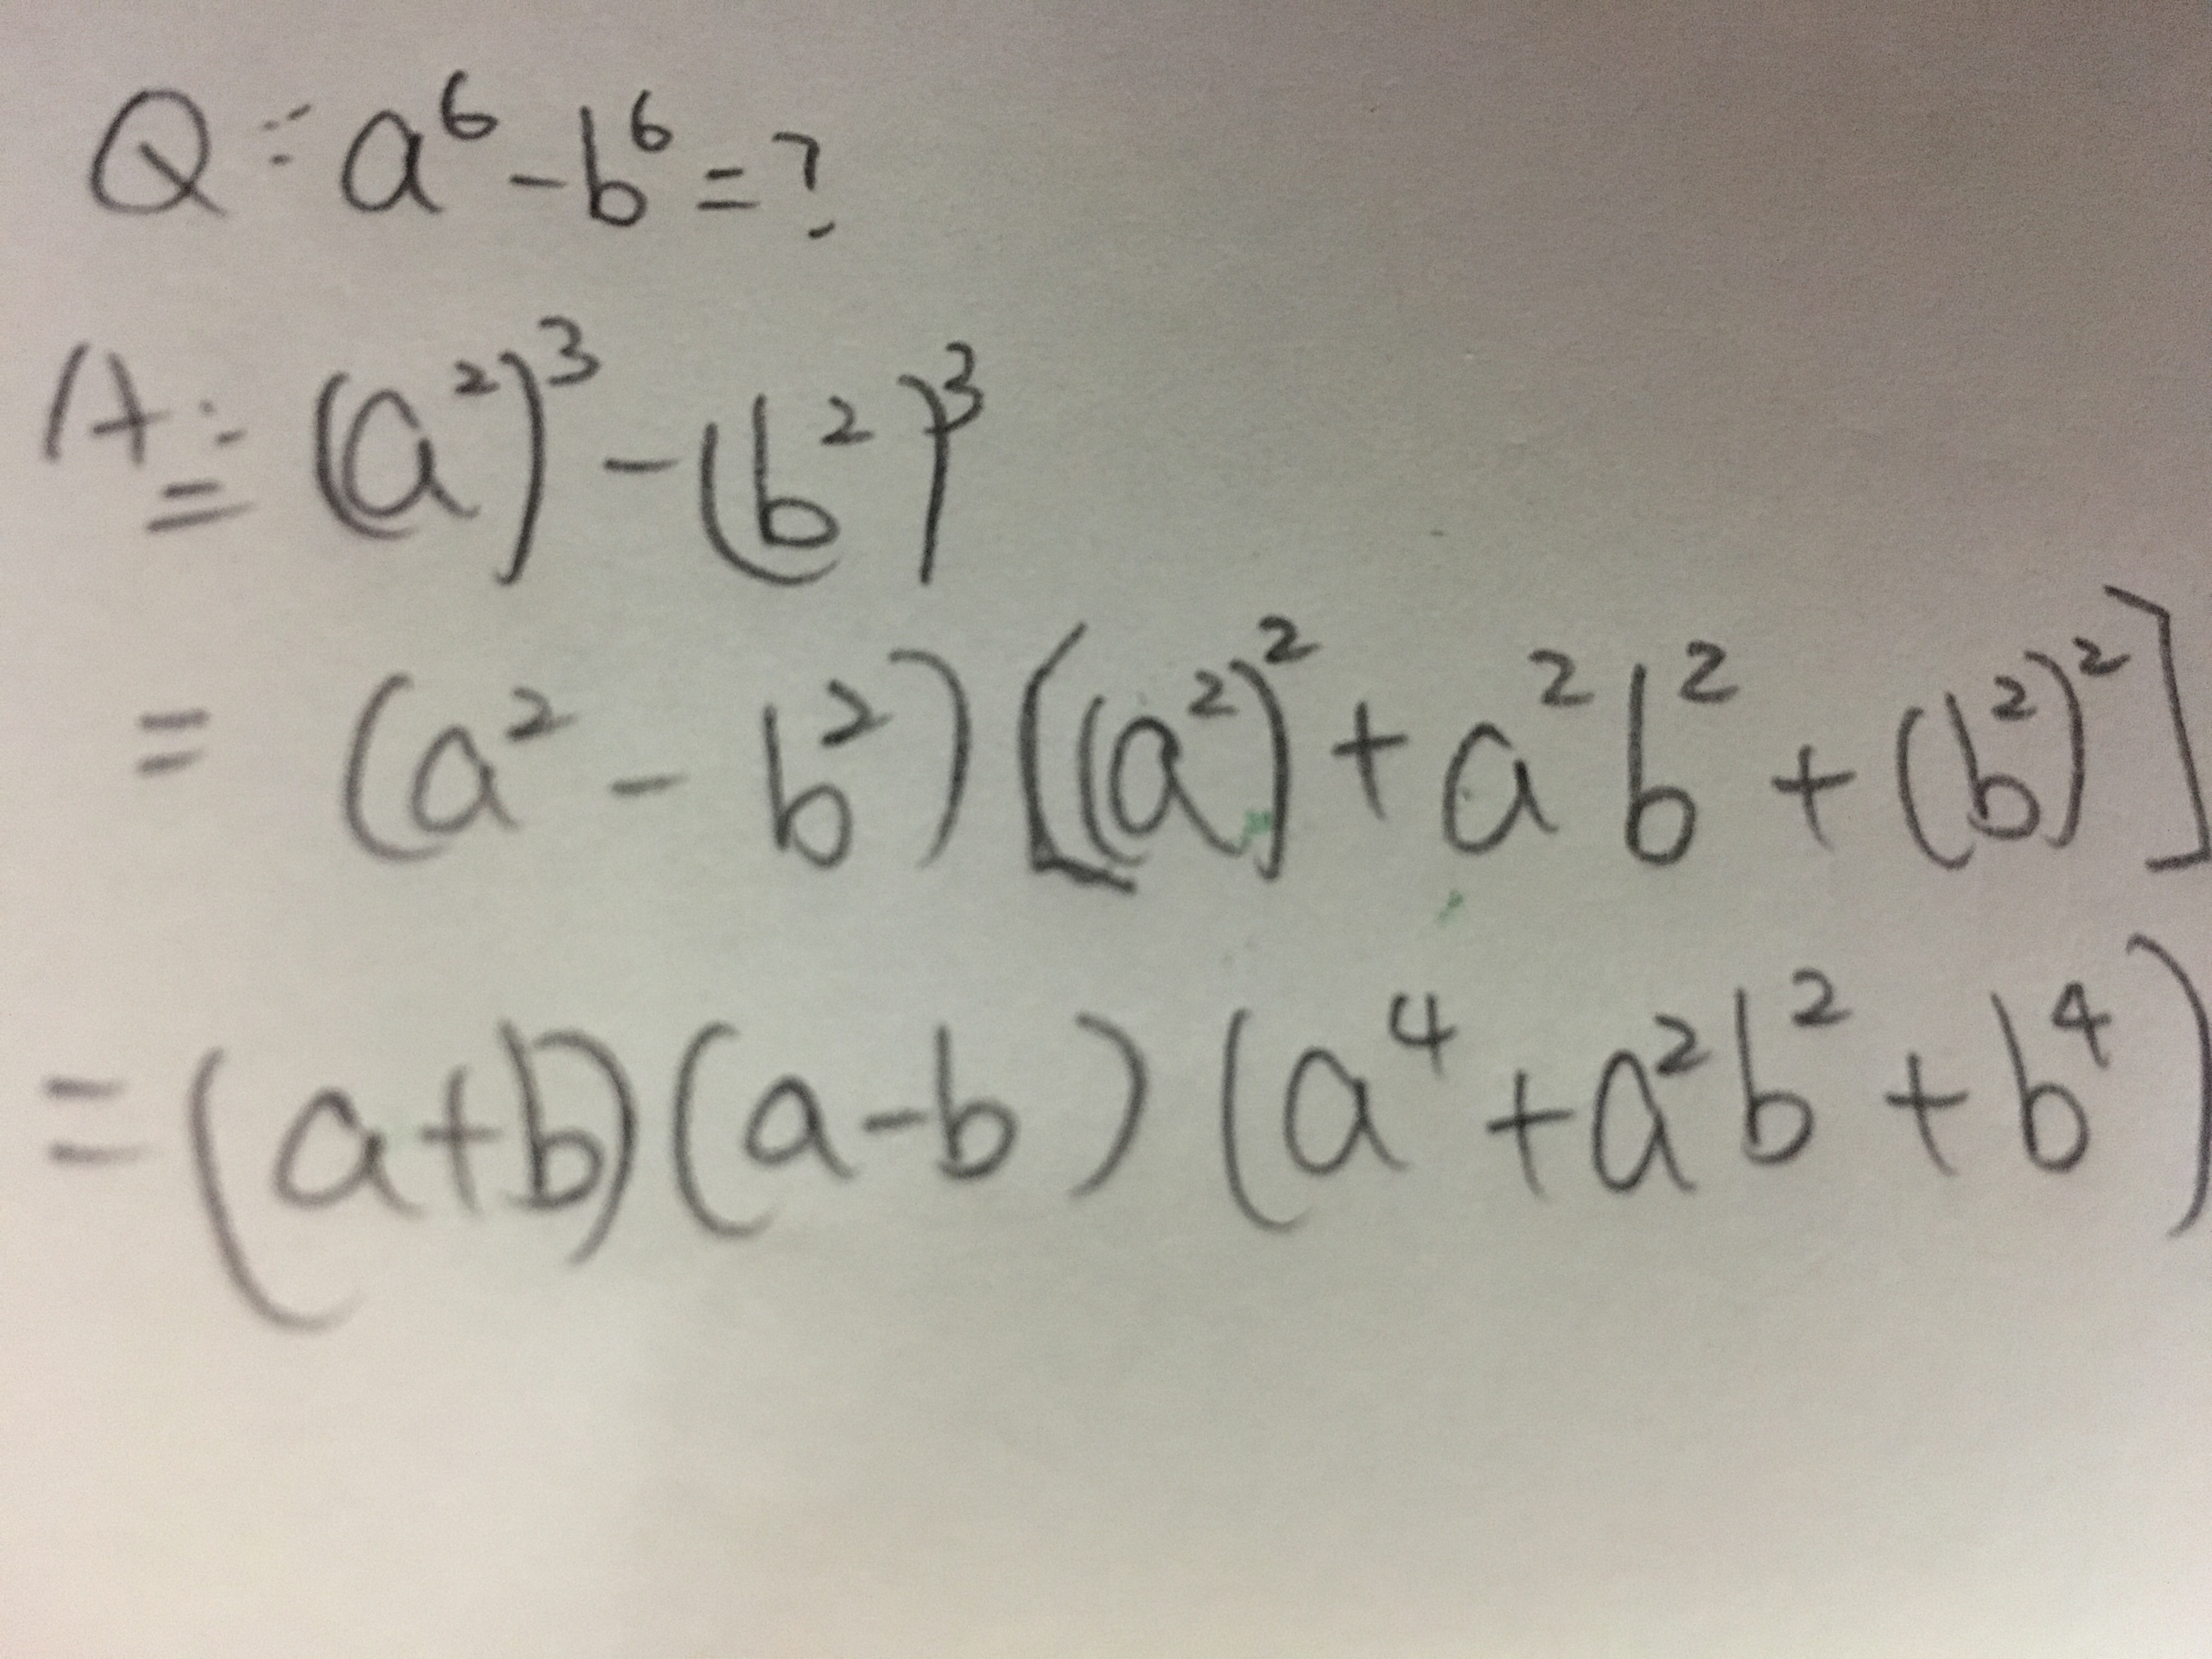 Q: a⁶-b⁶=?
A: = (a²)³-(b²)³
= (a²-b²)[(a²)²+a²b²+(b²)²]
=(a+b)(a-b)(a⁴+a²b²+b⁴)